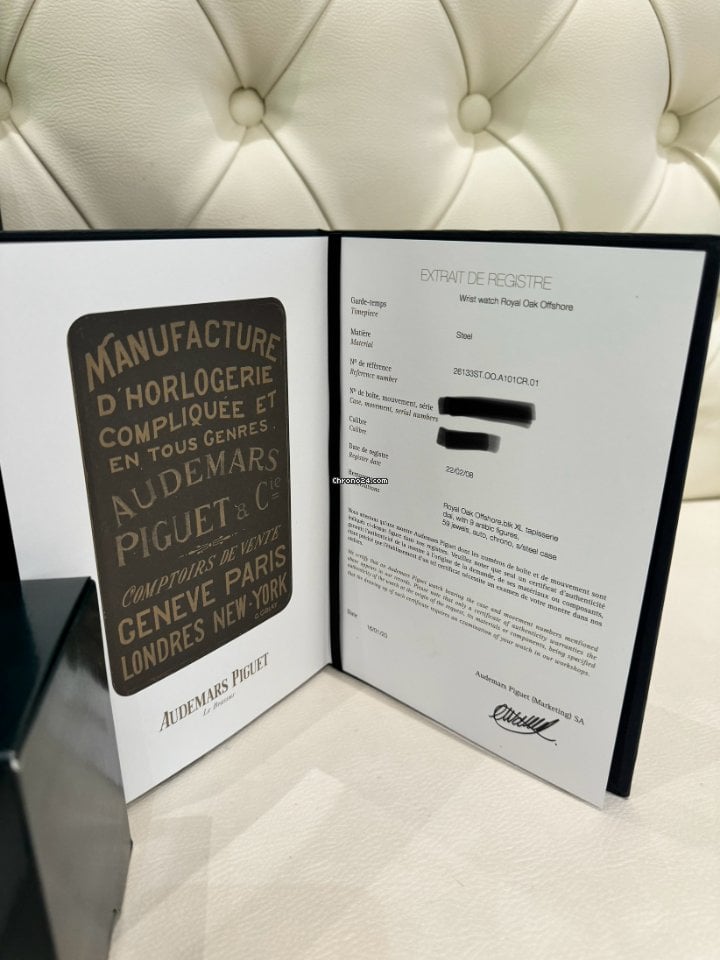 MANUFACTURE
D'HORLOGERIE
COMPLIQUÉE ET
EN TOUS GENRES.
AUDEMARS
PIGUET & Cie
COMPTOIRS DE VENTE
GENEVE PARIS
LONDRES NEW-YORK
AUDEMARS PIGUET
Le Brassus
EXTRAIT DE REGISTRE
Garde-temps
Timepiece
Wrist watch Royal Oak Offshore
Matière
Material
Steel
N° de référence
Reference number
26133ST.OO.A101CR.01
N° de boîte, mouvement, série
Case, movement, serial numbers
Calibre
Calibre
Date de registre
Register date
22/02/08
Chrono24.com
Royal Oak Offshore,blk XL tapisserie
dial, with 9 arabic figures,
59 jewels, auto, chrono, s/steel case
Nous attestons qu'une montre Audemars Piguet dont les numéros de boîte et de mouvement sont
indiqués ci-dessus figure dans nos registres. Veuillez noter que seul un certificat d'authenticité
garantit l'authenticité de la montre à l'origine de la demande, de ses matériaux ou composants,
étant précisé que l'établissement d'un tel certificat nécessite un examen de votre montre dans nos
ateliers.
We certify that an Audemars Piguet watch bearing the case and movement numbers mentioned
above appears in our records. Please note that only a certificate of authenticity warranties the
authenticity of the watch at the origin of the request, its materials or components, being specified
that the drawing up of such certificate requires an examination of your watch in our workshops.
Date
16/01/20
Audemars Piguet (Marketing) SA